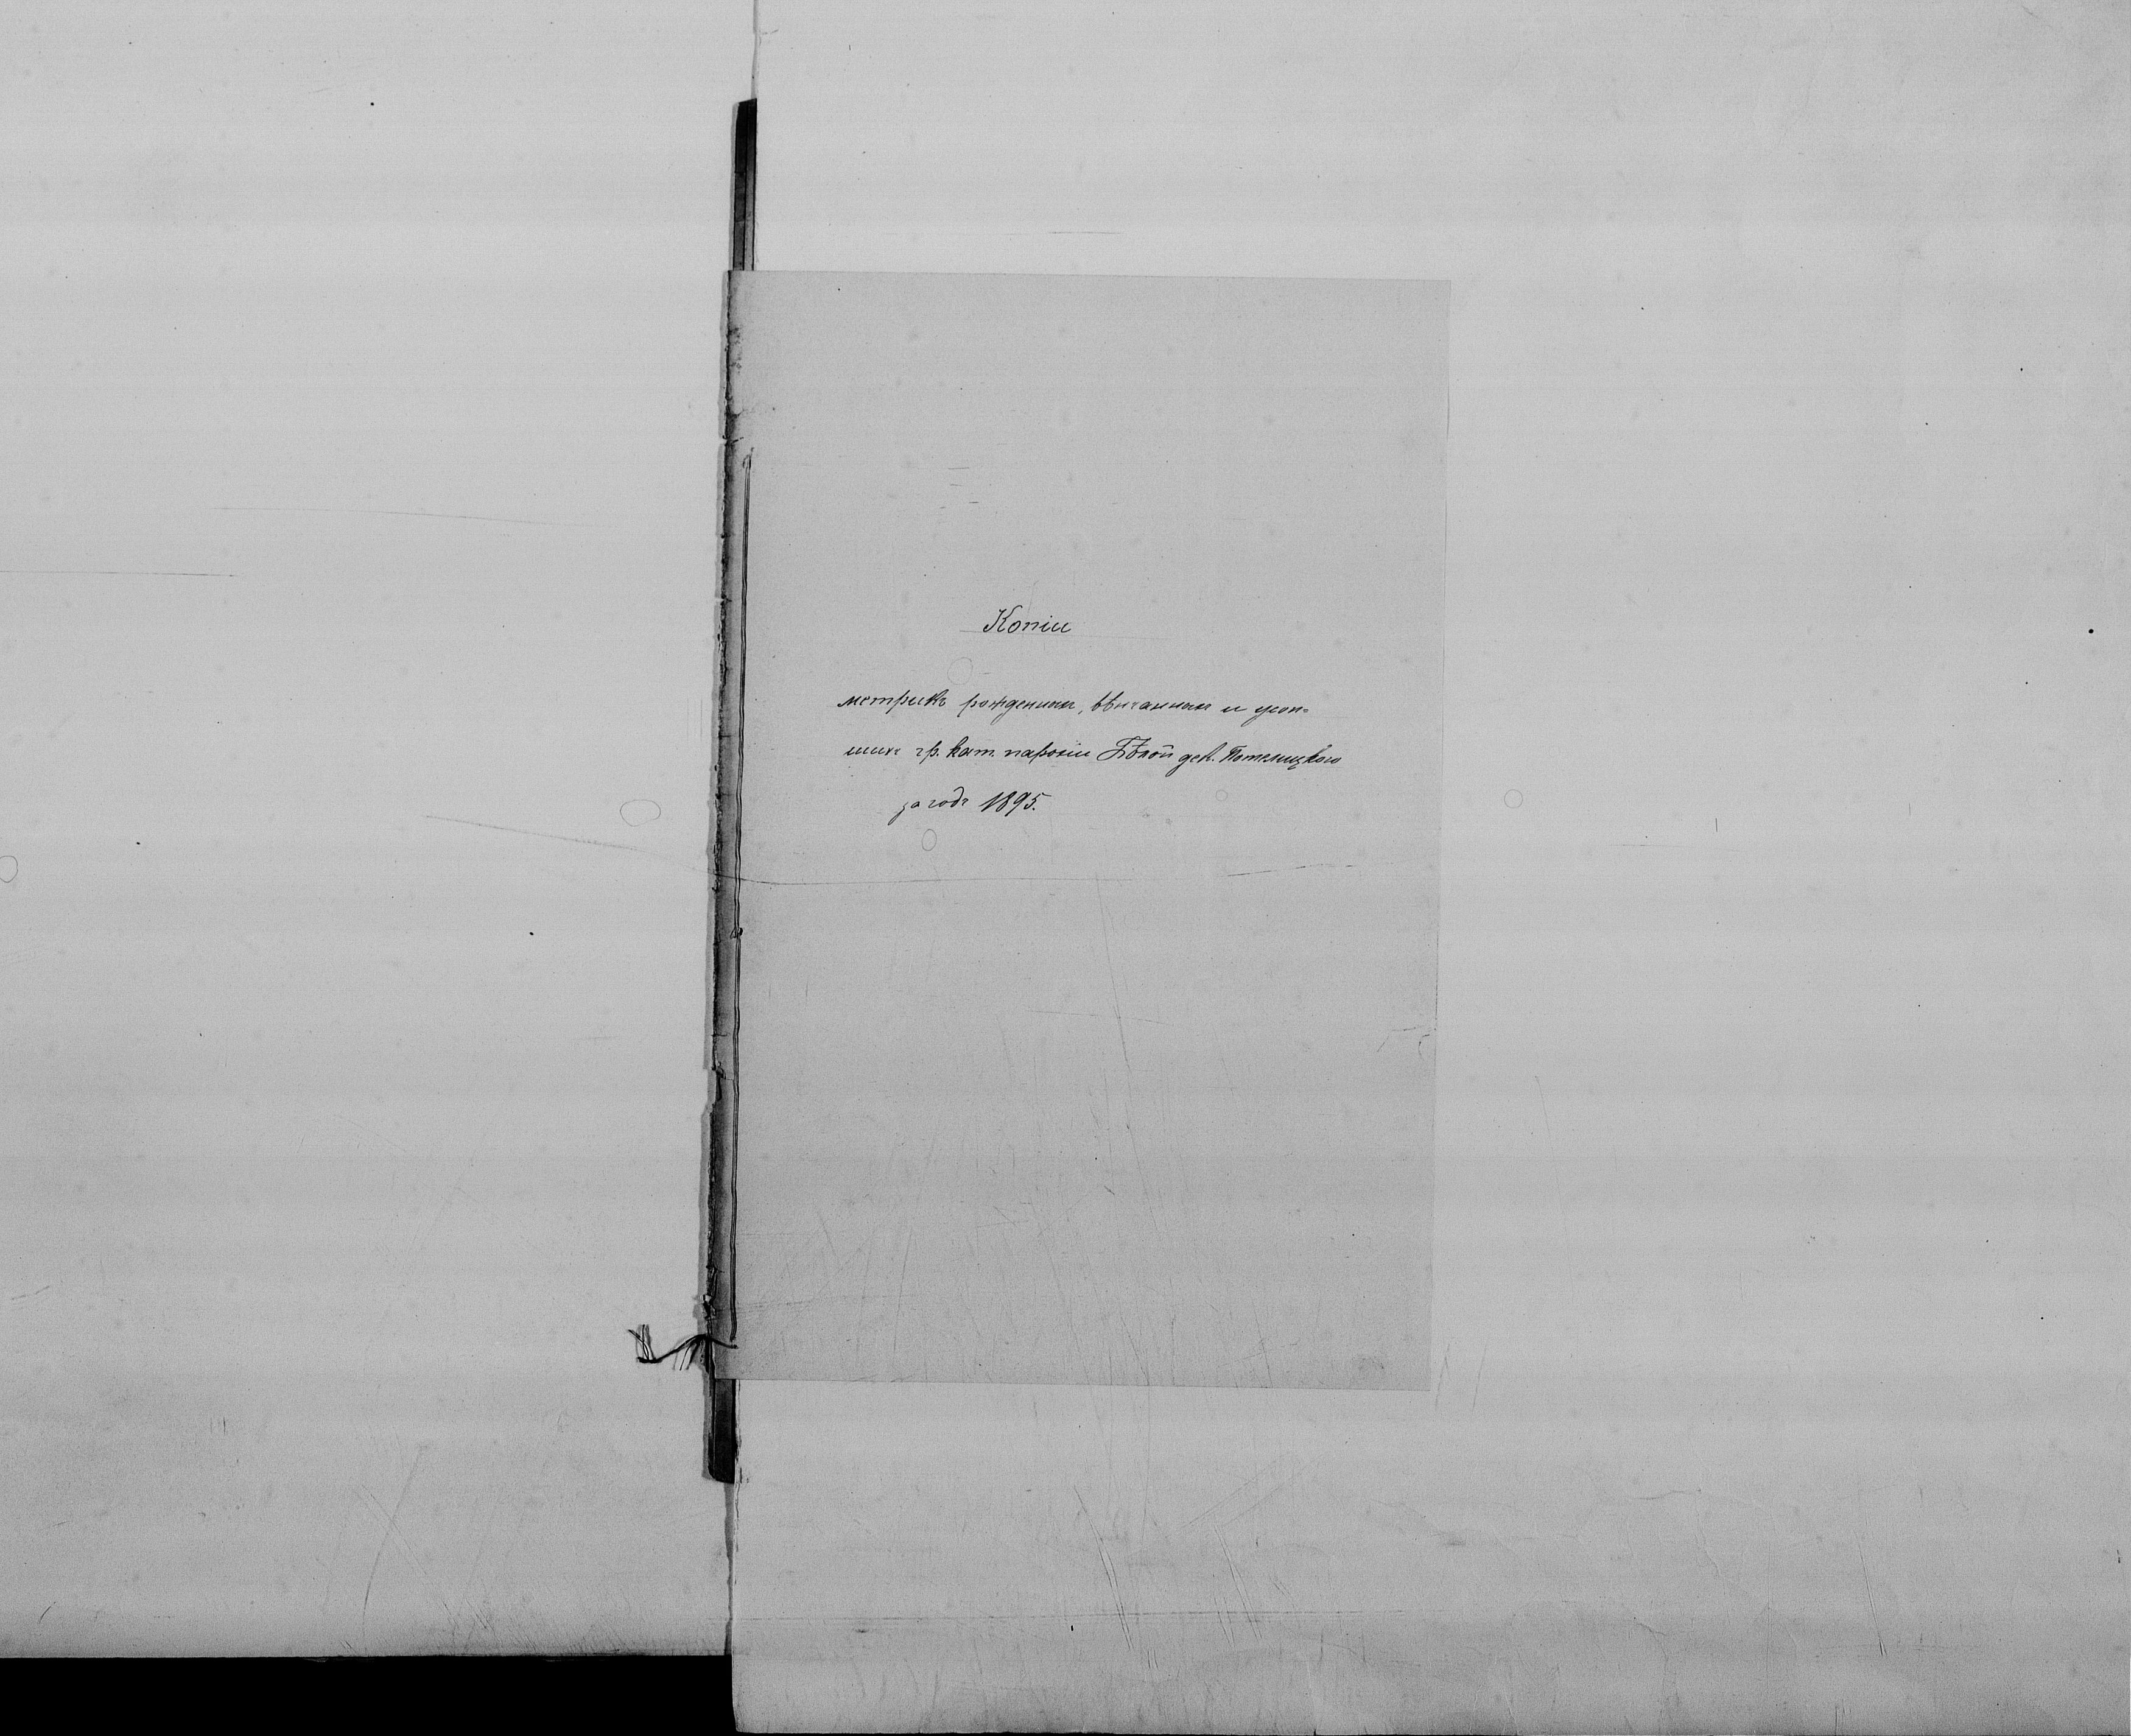 Копіи
метрикъ рожденныхъ, вѣнчанныхъ и усоп-
шихъ гр. кат. парохіи Бѣлой дек. Потелицкого
за годъ 1895.